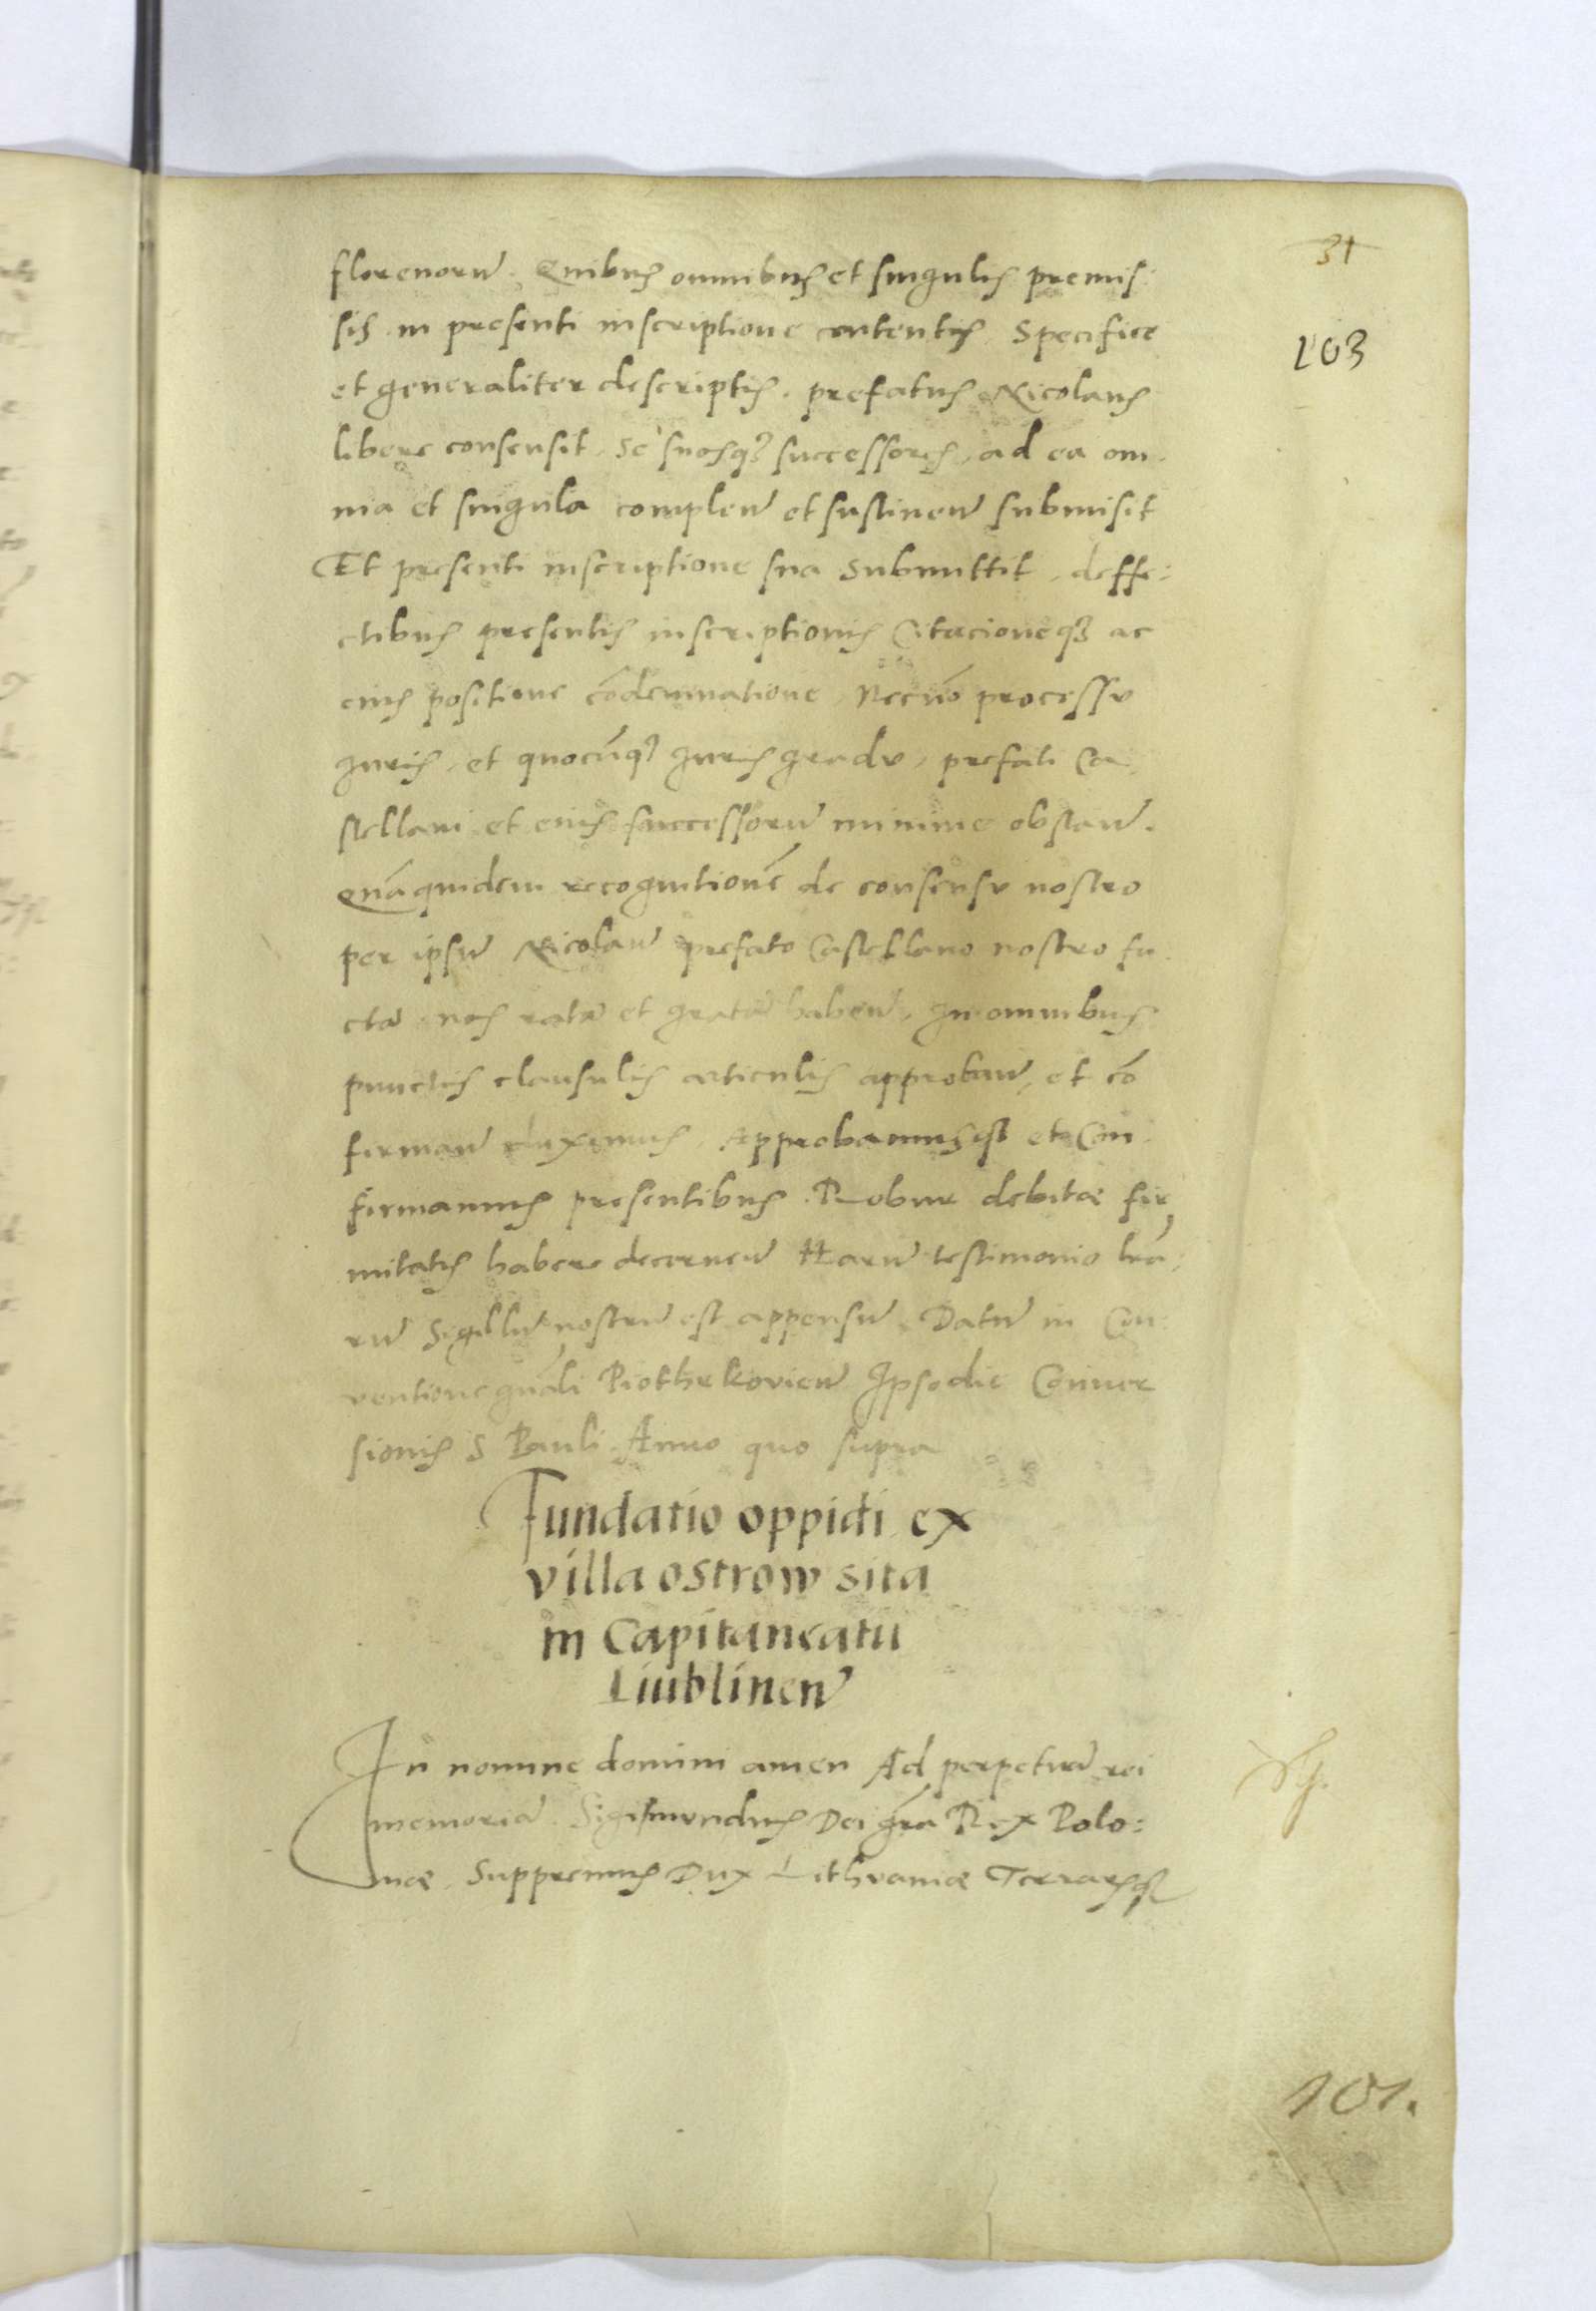 31
florenorū. Quibus omnibus et singulis premis
sis in presenti inscriptione contentis Specifice
et generaliter descriptis. prefatus Nicolaus
libere consensit. Se suosq3 successores, ad ea om
nia et singula complen̄ et sustinen̄ submisit
Et presenti inscriptione sua submittit, deffe:
ctibus presentis inscriptionis Citacioneq3 ac
eius positione cōdemnatione, Necnō processu
Iuris, et quocūq3 Iuris gradu, prefati Ca
stellani et eius successorū minime obstan̄.
Quā quidem recognitionē de consensu nostro
per ipsū Nicolaū prefato Castellano nostro fa
ctā nos ratā et gratā haben̄, In omnibus
punctis clausulis articulis approban̄, et cō
firman̄ duximus, Approbamusq3 et Con
firmamus presentibus. Robur debitæ fir
mitatis habere decernen̄ Harū testimonio lrā
rū Sigillū nostrū est appensū. Datū in Con:
ventione gnāli Piothrkovien̄ Ipso die Conver
sionis S Pauli Anno quo supra
103
Fundatio oppidi ex
villa ostrow sita
in Capitaneatu
Liublinen̄
In nomine domini amen Ad perpetuā rei
memoriā. Sigismundus Dei grā Rex Polo:
niæ, Suppremus Dux Lithvaniæ Terrarūq3
101.